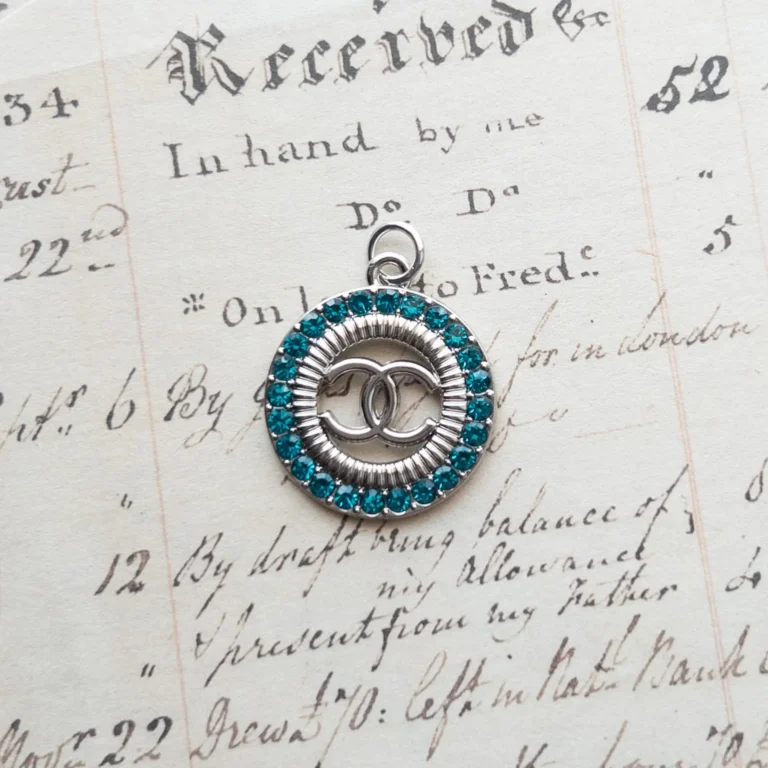 Received &c
34 In hand by me 52
ust
Do. Do "
22nd 5
※ On to Fred.c
for in London
6 By
"
12 By draft being balance of
my Allowance
& present from my Father
"
22 Drew 70: left in Natl. Bank